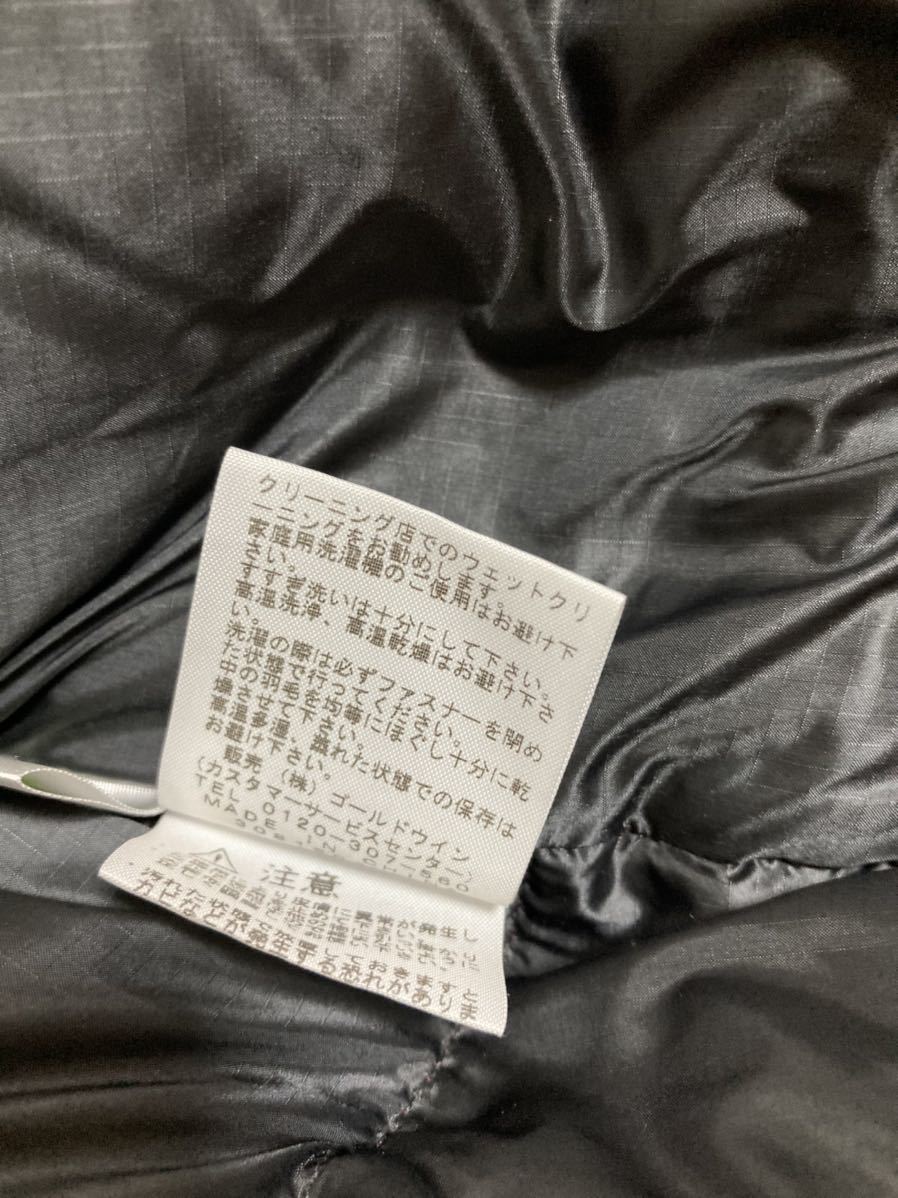 クリーニング店でのウェットクリ
ーニングをお勧めします。
家庭用洗濯機のご使用はお避け下
さい。
すすぎ洗いは十分にして下さい。
高温洗浄、高温乾燥はお避け下さ
い。
洗濯の際は必ずファスナーを閉め
た状態で行ってください。
中の羽毛を均等にほぐし十分に乾
燥させて下さい。
高温多湿、蒸れた状態での保存は
お避け下さい。
販売 (株)ゴールドウイン
(カスタマーサービスセンター)
TEL 0120-307-560
MADE IN
注意
カビなどが発生する恐れがありま